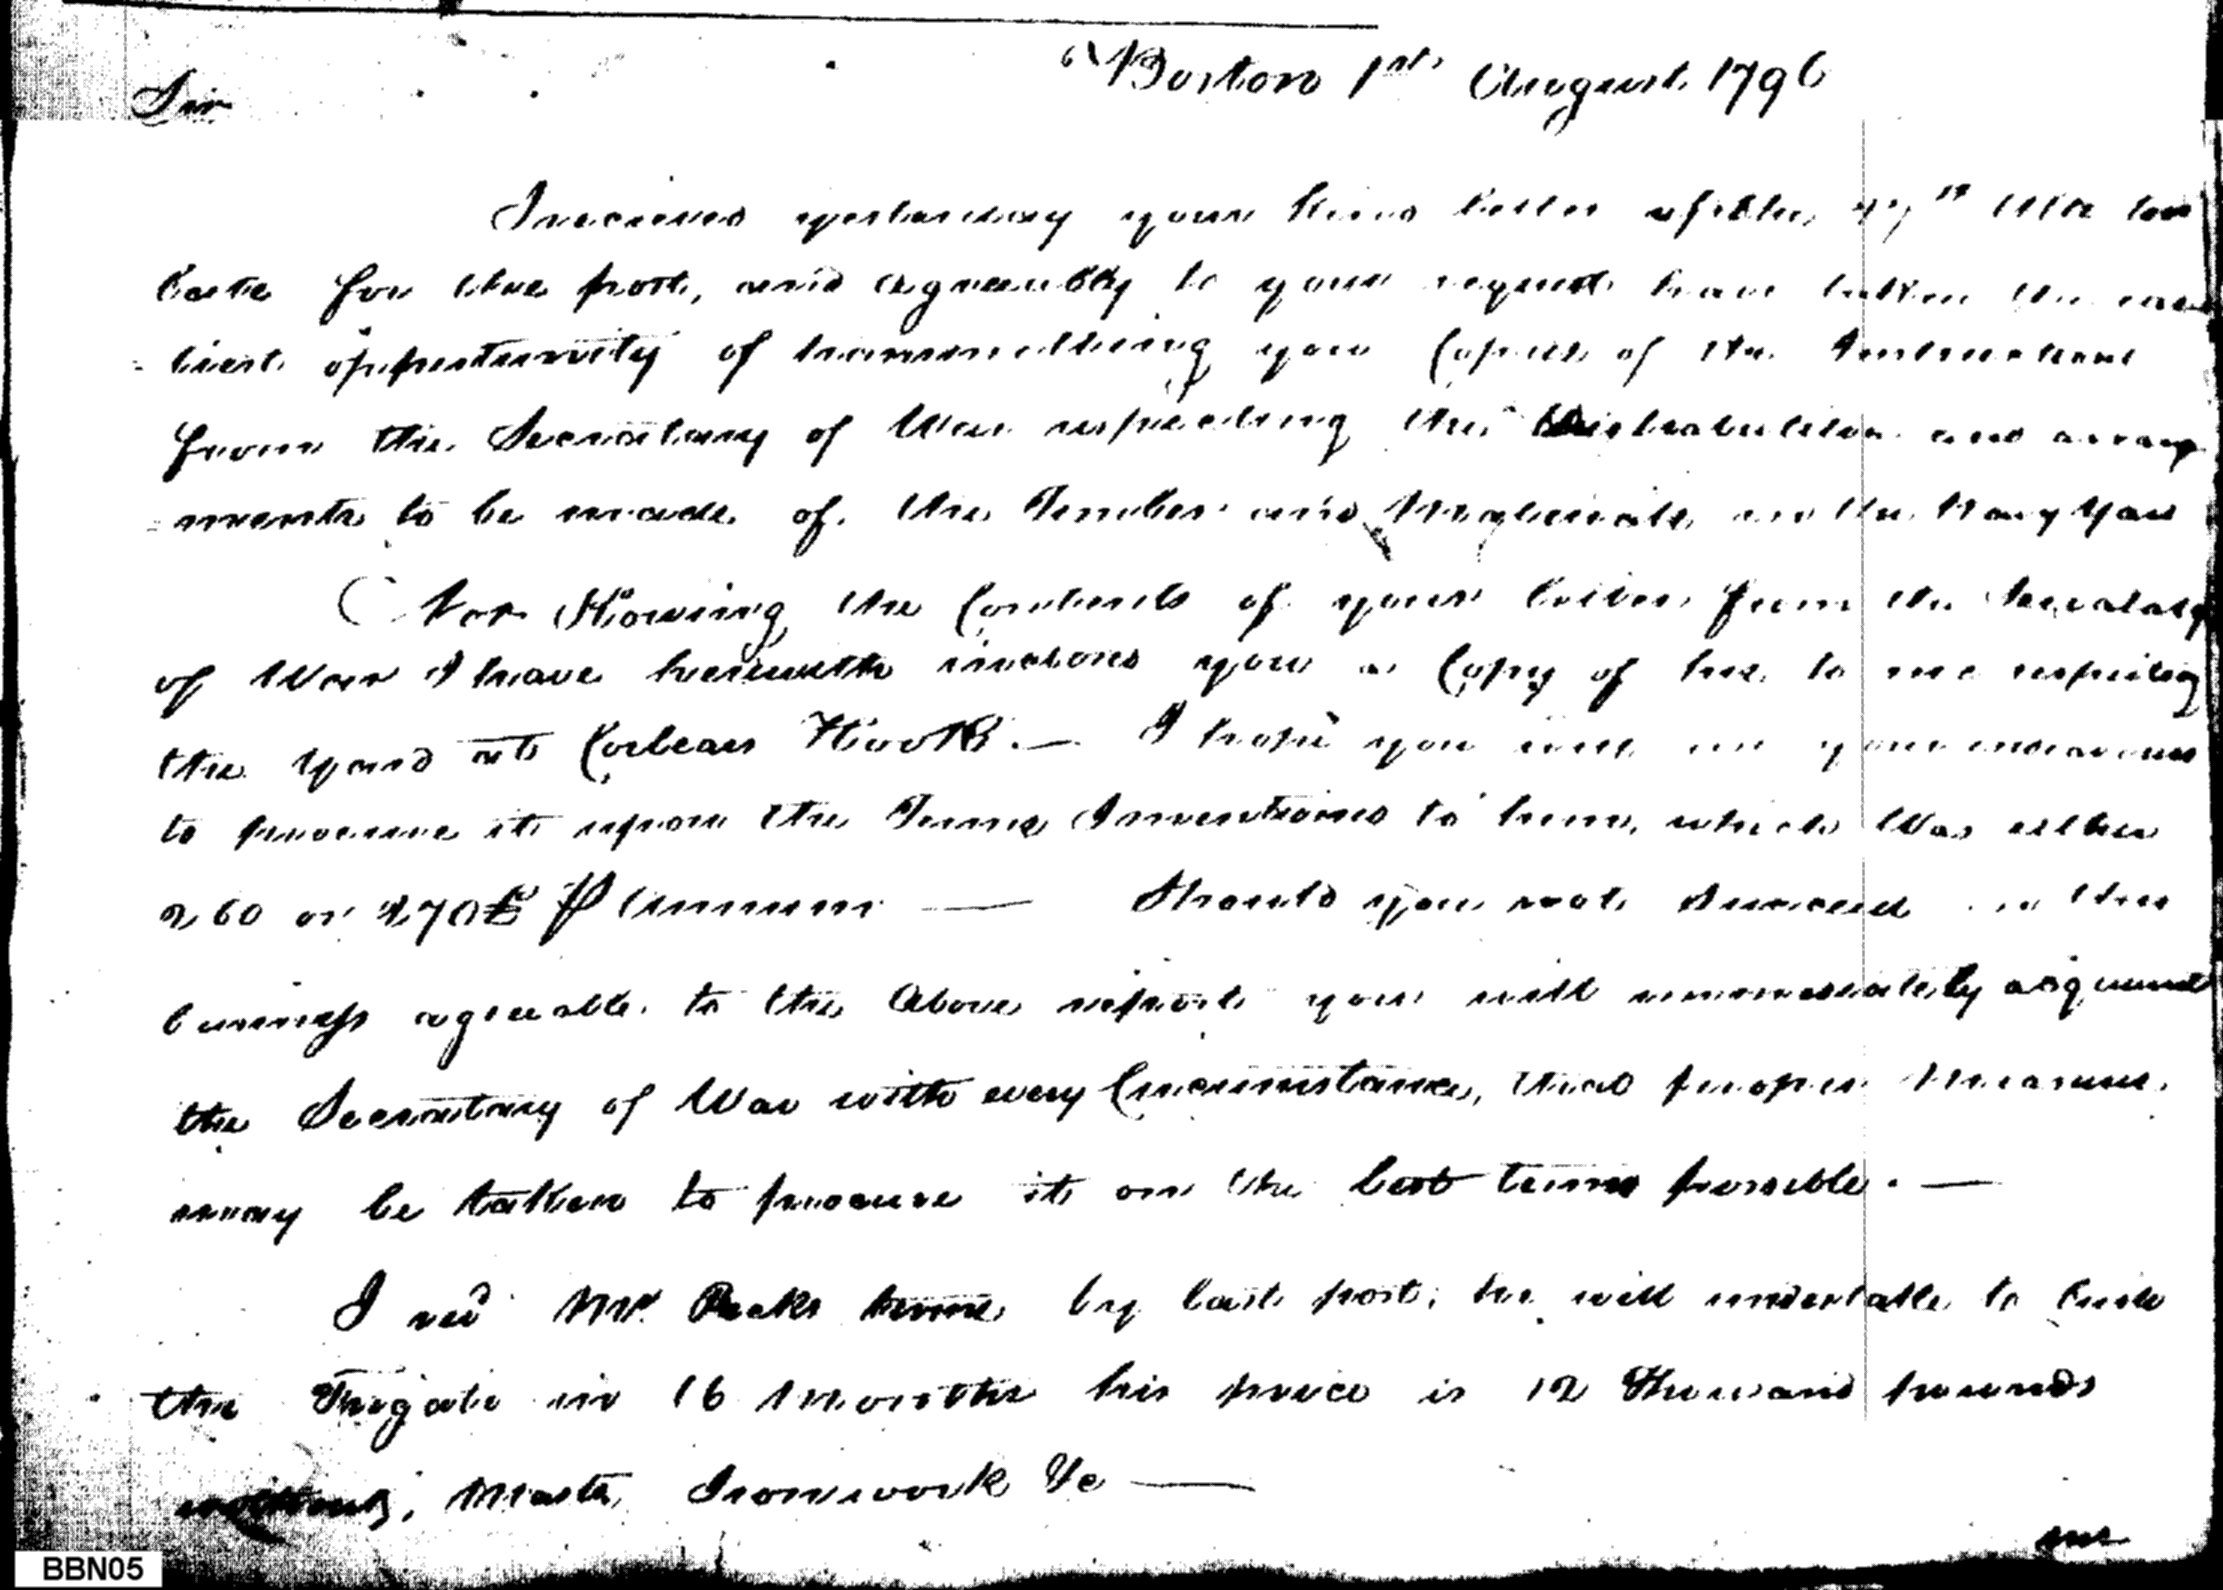 Boston 1st August 1796
Sir
I recieved yesterday your kind letter of the 27th Ulto too
late for the post, and agreeably to your request have taken the ear
liest opportunity of transmitting you Copies of the Instructions
from the Secretary of War respecting the Distribution and arrange
ments to be made of the Timber and Materials in the Navy Yard
Not Knowing the Contents of your letter from the Secretary
of War I have herewith inclosed you a Copy of his to me respecting
the yard at Corlears Hook. — I hope you will use your endeavours
to procure it upon the Terms I mentioned to him, which was either
260 or 270£ ⅌ Annum — Should you not succeed in this
business agreeable to the Above report you will immediately acquaint
the Secretary of War with every Circumstance, that proper Measures
may be taken to procure it on the best terms possible. —
I recd Mr. Pecks terms by last post; he will undertake to build
the Frigate in 16 Months his price is 12 Thousand pounds
without, Masts, Ironwork &c —
BBN05